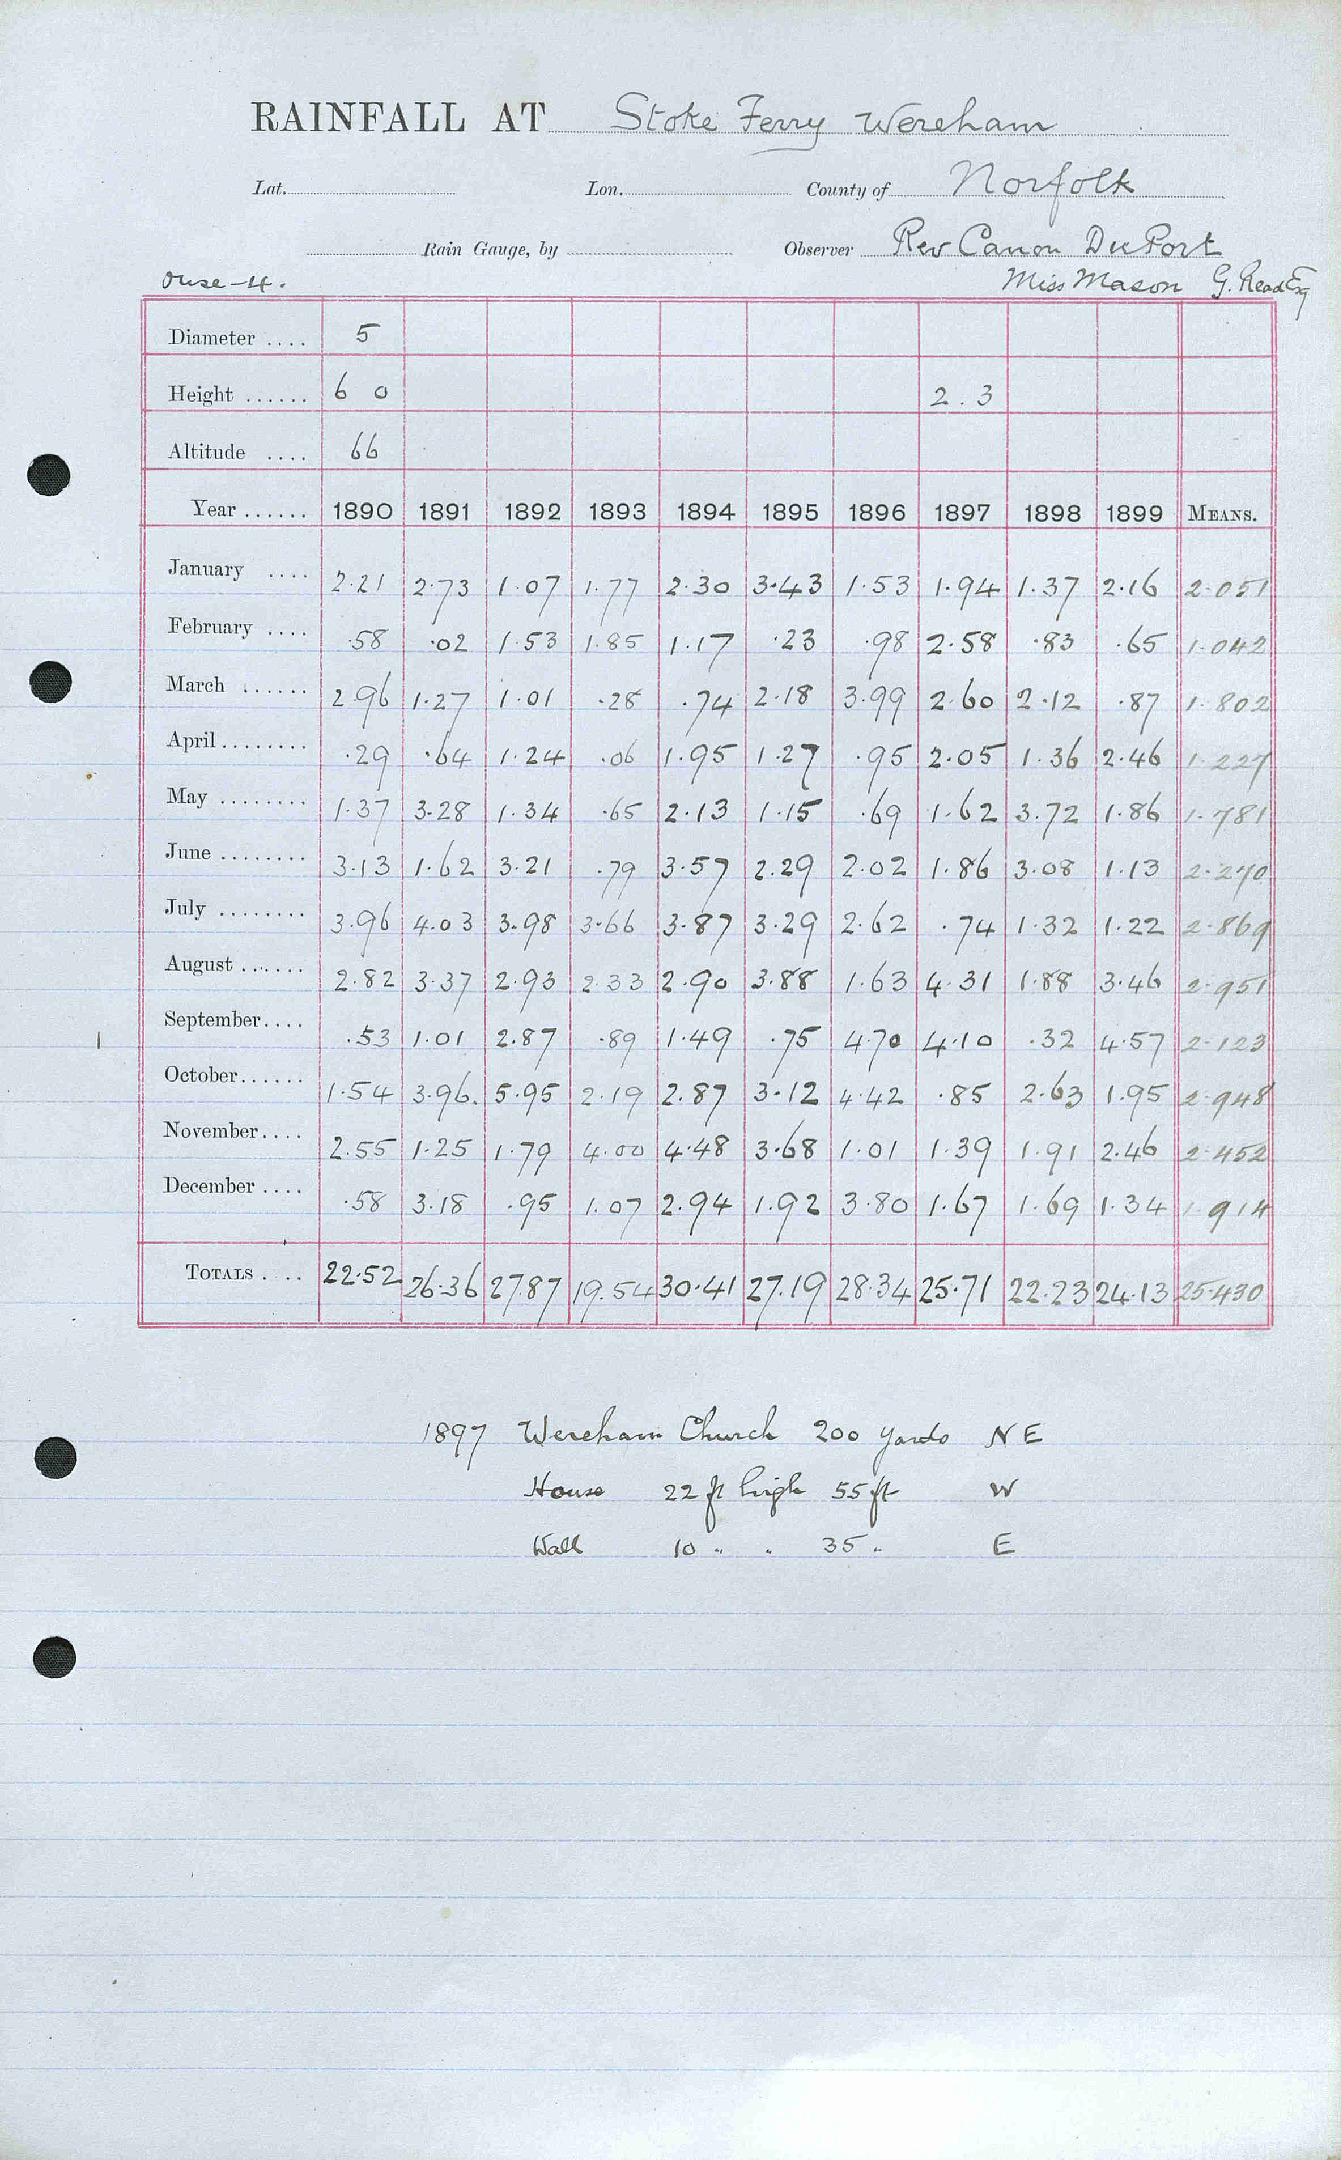 RAINFALL AT Stoke Ferry Wereham
Lat. Lon. County of Norfolk
Rain Gauge, by Observer Rev Canon Du Port
Ouse-4. Miss Mason G. Read Esq
Diameter .... 5
Height ...... 6 0 2.3
Altitude .... 66
Year ...... 1890 1891 1892 1893 1894 1895 1896 1897 1898 1899 MEANS.
January .... 2.21 2.73 1.07 1.77 2.30 3.43 1.53 1.94 1.37 2.16 2.051
February .... .58 .02 1.53 1.85 1.17 .23 .98 2.58 .83 .65 1.042
March ...... 2.96 1.27 1.01 .28 .74 2.18 3.99 2.60 2.12 .87 1.802
April ........ .29 .64 1.24 .06 1.95 1.27 .95 2.05 1.36 2.46 1.227
May ........ 1.37 3.28 1.34 .65 2.13 1.15 .69 1.62 3.72 1.86 1.781
June ........ 3.13 1.62 3.21 .79 3.57 2.29 2.02 1.86 3.08 1.13 2.270
July ........ 3.96 4.03 3.98 3.66 3.87 3.29 2.62 .74 1.32 1.22 2.869
August ...... 2.82 3.37 2.93 2.33 2.90 3.88 1.63 4.31 1.88 3.46 2.951
September.... .53 1.01 2.87 .89 1.49 .75 4.70 4.10 .32 4.57 2.123
October...... 1.54 3.96. 5.95 2.19 2.87 3.12 4.42 .85 2.63 1.95 2.948
November.... 2.55 1.25 1.79 4.00 4.48 3.68 1.01 1.39 1.91 2.46 2.452
December .... .58 3.18 .95 1.07 2.94 1.92 3.80 1.67 1.69 1.34 1.914
TOTALS .... 22.52 26.36 27.87 19.54 30.41 27.19 28.34 25.71 22.23 24.13 25.430
1897 Wereham Church 200 yards NE
House 22 ft high 55 ft W
Wall 10 " " 35 " E